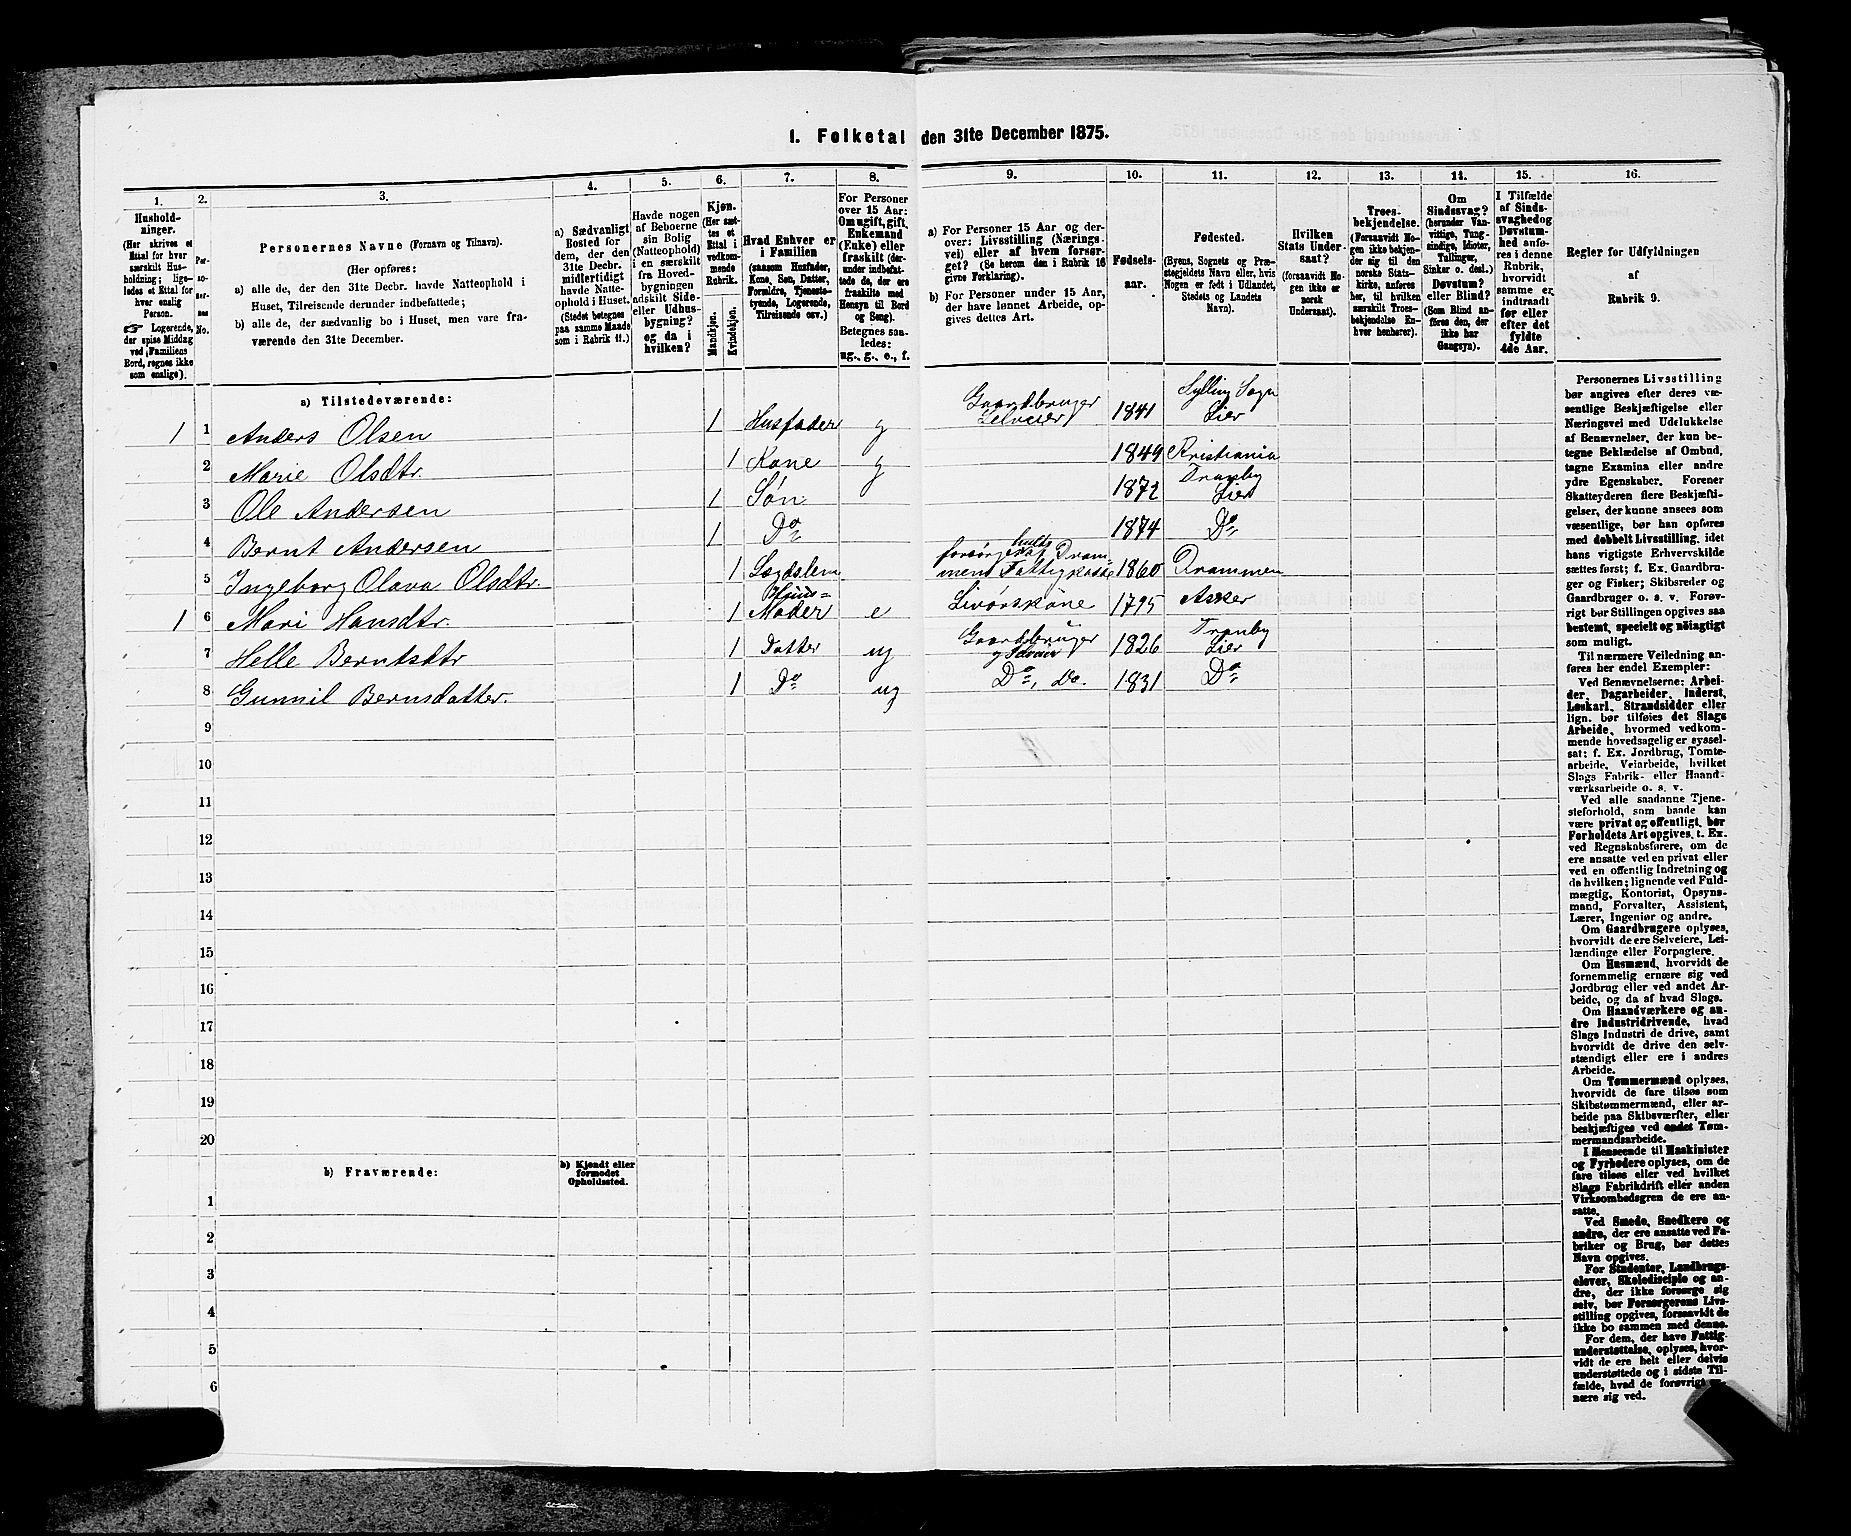 1. Folketal den 31te December 1875.
1. 2. 3. 4. 5. 6. 7. 8. 9. 10. 11. 12. 13. 14. 15. 16.
Hushold-
ninger.
(Her skrives et
Ettal for hver
særskilt Hus-
holdning; lige-
ledes et Ettal for
hver enslig
Person.
☞ Logerende,
der spise Middag
ved Familiens
Bord, regnes ikke
som enslige).
Per-
so-
ner-
nes
No.
Personernes Navne (Fornavn og Tilnavn).
(Her opføres:
a) alle de, der den 31te Decbr. havde Natteophold i
Huset, Tilreisende derunder indbefattede;
b) alle de, der sædvanlig bo i Huset, men vare fra-
værende den 31te December.
a) Sædvanligt
Bosted for
dem, der den
31te Decbr.
midlertidigt
havde Natte-
ophold i Huset.
(Stedet betegnes
paa samme Maade
som i Rubrik 11.)
Havde nogen
af Beboerne
sin Bolig
(Natteophold)
i en særskilt
fra Hoved-
bygningen
adskilt Side-
eller Udhus-
bygning?
og da i
hvilken?
Kjøn.
(Her sæt-
tes et
Ettal i
vedkom-
mende
Rubrik.
Mandkjøn.
Kvindekjøn.
Hvad Enhver er
i Familien
(saasom Husfader,
Kone, Søn, Datter,
Forældre, Tjeneste-
tyende, Logerende,
Tilreisende osv.)
For Personer
over 15 Aar:
Om ugift, gift,
Enkemand
(Enke) eller
fraskilt (der-
under indbefat-
tede de, der ere
fraskilte med
Hensyn til Bord
og Seng).
Betegnes saa-
ledes:
ug., g., e., f.
a) For Personer 15 Aar og der-
over: Livsstilling (Nærings-
vei) eller af hvem forsør-
get? (Se herom den i Rubrik 16
givne Forklaring).
b) For Personer under 15 Aar,
der have lønnet Arbeide, op-
gives dettes Art.
Fødsels-
aar.
Fødested.
(Byens, Sognets og Præ-
stegjeldets Navn eller, hvis
Nogen er født i Udlandet,
Stedets og Landets
Navn).
Hvilken
Stats Under-
saat?
(forsaavidt No-
gen ikke er
norsk
Undersaat).
Troes-
bekjendelse.
(Forsaavidt No-
gen ikke bekjen-
der sig til den
norske Stats-
kirke, anføres
her, til hvilken
særskilt Troes-
bekjendelse En-
hver henhører).
Om
Sindssvag?
(herunder Van-
vittige, Tung-
sindige, Idioter,
Tullinger,
Sinker o. desl.)
Døvstum?
eller Blind?
(Som Blind an-
føres den, der
ikke har
Gangsyn).
I Tilfælde
af Sinds-
svaghed og
Døvstum-
hed anfø-
res i denne
Rubrik,
hvorvidt
samme er
indtraadt
før eller
efter det
fyldte
4de Aar.
Regler for Udfyldningen
af
Rubrik 9.
a) Tilstedeværende:
1 1 Anders Olsen 1 Husfader g Gaardbruger Selveier 1841 Sylling Sogn Lier
2 Marie Olsdtr. 1 Kone g 1849 Kristiania
3 Ole Andersen 1 Søn 1872 Tranby Lier
4 Bernt Andersen 1 Do 1874 Do
5 Ingeborg Olava Olsdtr. 1 Lægdslem forsørges helt af Drammens Fattigkasse 1860 Drammen
1 6 Mari Hansdtr. 1 Moder e 1795 Asker
7 Helle Berntsdtr 1 Datter ug Gaardbruger 1826 Tranby Lier
8 Gunnil Bernsdatter. 1 Do ug Do, Do. 1831 Do
9
10
11
12
13
14
15
16
17
18
19
20
b) Fraværende:
b) Kjendt eller
formodet
Opholdssted.
1
2
3
4
5
6
Personernes Livsstilling
bør angives efter deres væ-
sentlige Beskjæftigelse eller
Næringsvei med Udelukkelse
af Benævnelser, der kun be-
tegne Beklædelse af Ombud,
tagne Examina eller andre
ydre Egenskaber. Forener
Skatteyderen flere Beskjæfti-
gelser, der kunne ansees som
væsentlige, bør han opføres
med dobbelt Livsstilling, idet
hans vigtigste Erhvervskilde
sættes først; f. Ex. Gaardbru-
ger og Fisker; Skibsreder og
Gaardbruger o. s. v. Forøv-
rigt bør Stillingen opgives saa
bestemt, specielt og nøiagtigt
som muligt.
Til nærmere Veiledning an-
føres her endel Exempler:
Ved Benævnelserne: Arbei-
der, Dagarbeider, Inderst,
Løskarl, Strandsidder eller
lign. bør tilføies det Slags
Arbeide, hvormed vedkom-
mende hovedsagelig er syssel-
sat; f. Ex. Jordbrug, Tomte-
arbeide, Veiarbeide, hvilket
Slags Fabrik- eller Haand-
værksarbeide o. s. v.
Ved alle saadanne Tjene-
steforhold, som baade kan
være privat og offentligt, bør
Forholdets Art opgives, t. Ex.
ved Regnskabsførere, om de
ere ansatte ved en privat eller
ved en offentlig Indretning og
da hvilken; lignende ved Fuld-
mægtig, Kontorist, Opsyns-
mand, Forvalter, Assistent,
Lærer, Ingeniør og andre.
Om Gaardbrugere oplyses,
hvorvidt de ere Selveiere, Lei-
lændinge eller Forpagtere.
Om Husmænd, hvorvidt de
fornemmelig ernære sig ved
Jordbrug eller ved andet Ar-
beide, og da af hvad Slags.
Om Haandværkere og an-
dre Industridrivende, hvad
Slags Industri de drive, samt
hvorvidt de drive den selv-
stændigt eller ere i andres
Arbeide.
Om Tømmermænd oplyses,
hvorvidt de fare tilsøs som
Skibstømmermænd, eller ar-
beide paa Skibsværfter, eller
beskjæftiges ved andet Tøm-
mermandsarbeide.
I Henseende til Maskinister
og Fyrbødere oplyses, om de
fare tilsøs eller ved hvilket
Slags Fabrikdrift eller anden
Virksombedsgren de ere an-
satte.
Ved Smede, Snedkere og
andre, der ere ansatte ved Fa-
briker og Brug, bør dettes
Navn opgives.
For Studenter, Landbrugs-
elever, Skoledisciple og an-
dre, der ikke forsørge sig
selv, bør Forsørgerens Livs-
stilling opgives, forsaavidt de
ikke bo sammen med denne.
For dem, der have Fattig-
understøttelse, oplyses, hvor-
vidt de ere helt eller delvis
understøttede og i sidste Til-
fælde, hvad de forøvrigt er-
nære sig ved.